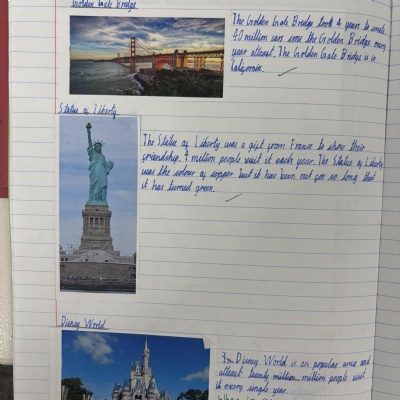 Golden Gate Bridge
The Golden Gate Bridge took 4 years to create.
40 million cars cross the Golden Bridge every
year atleast. The Golden Gate Bridge is in
California.
Statue of Liberty
The Statue of Liberty was a gift from France to show their
friendship. 4 million people visit it each year. The Statue of Liberty
was the colour of copper but it has been out for so long that
it has turned green.
Disney World
In Disney World is an popular area and
atleast twenty million million people visit
it every single year.